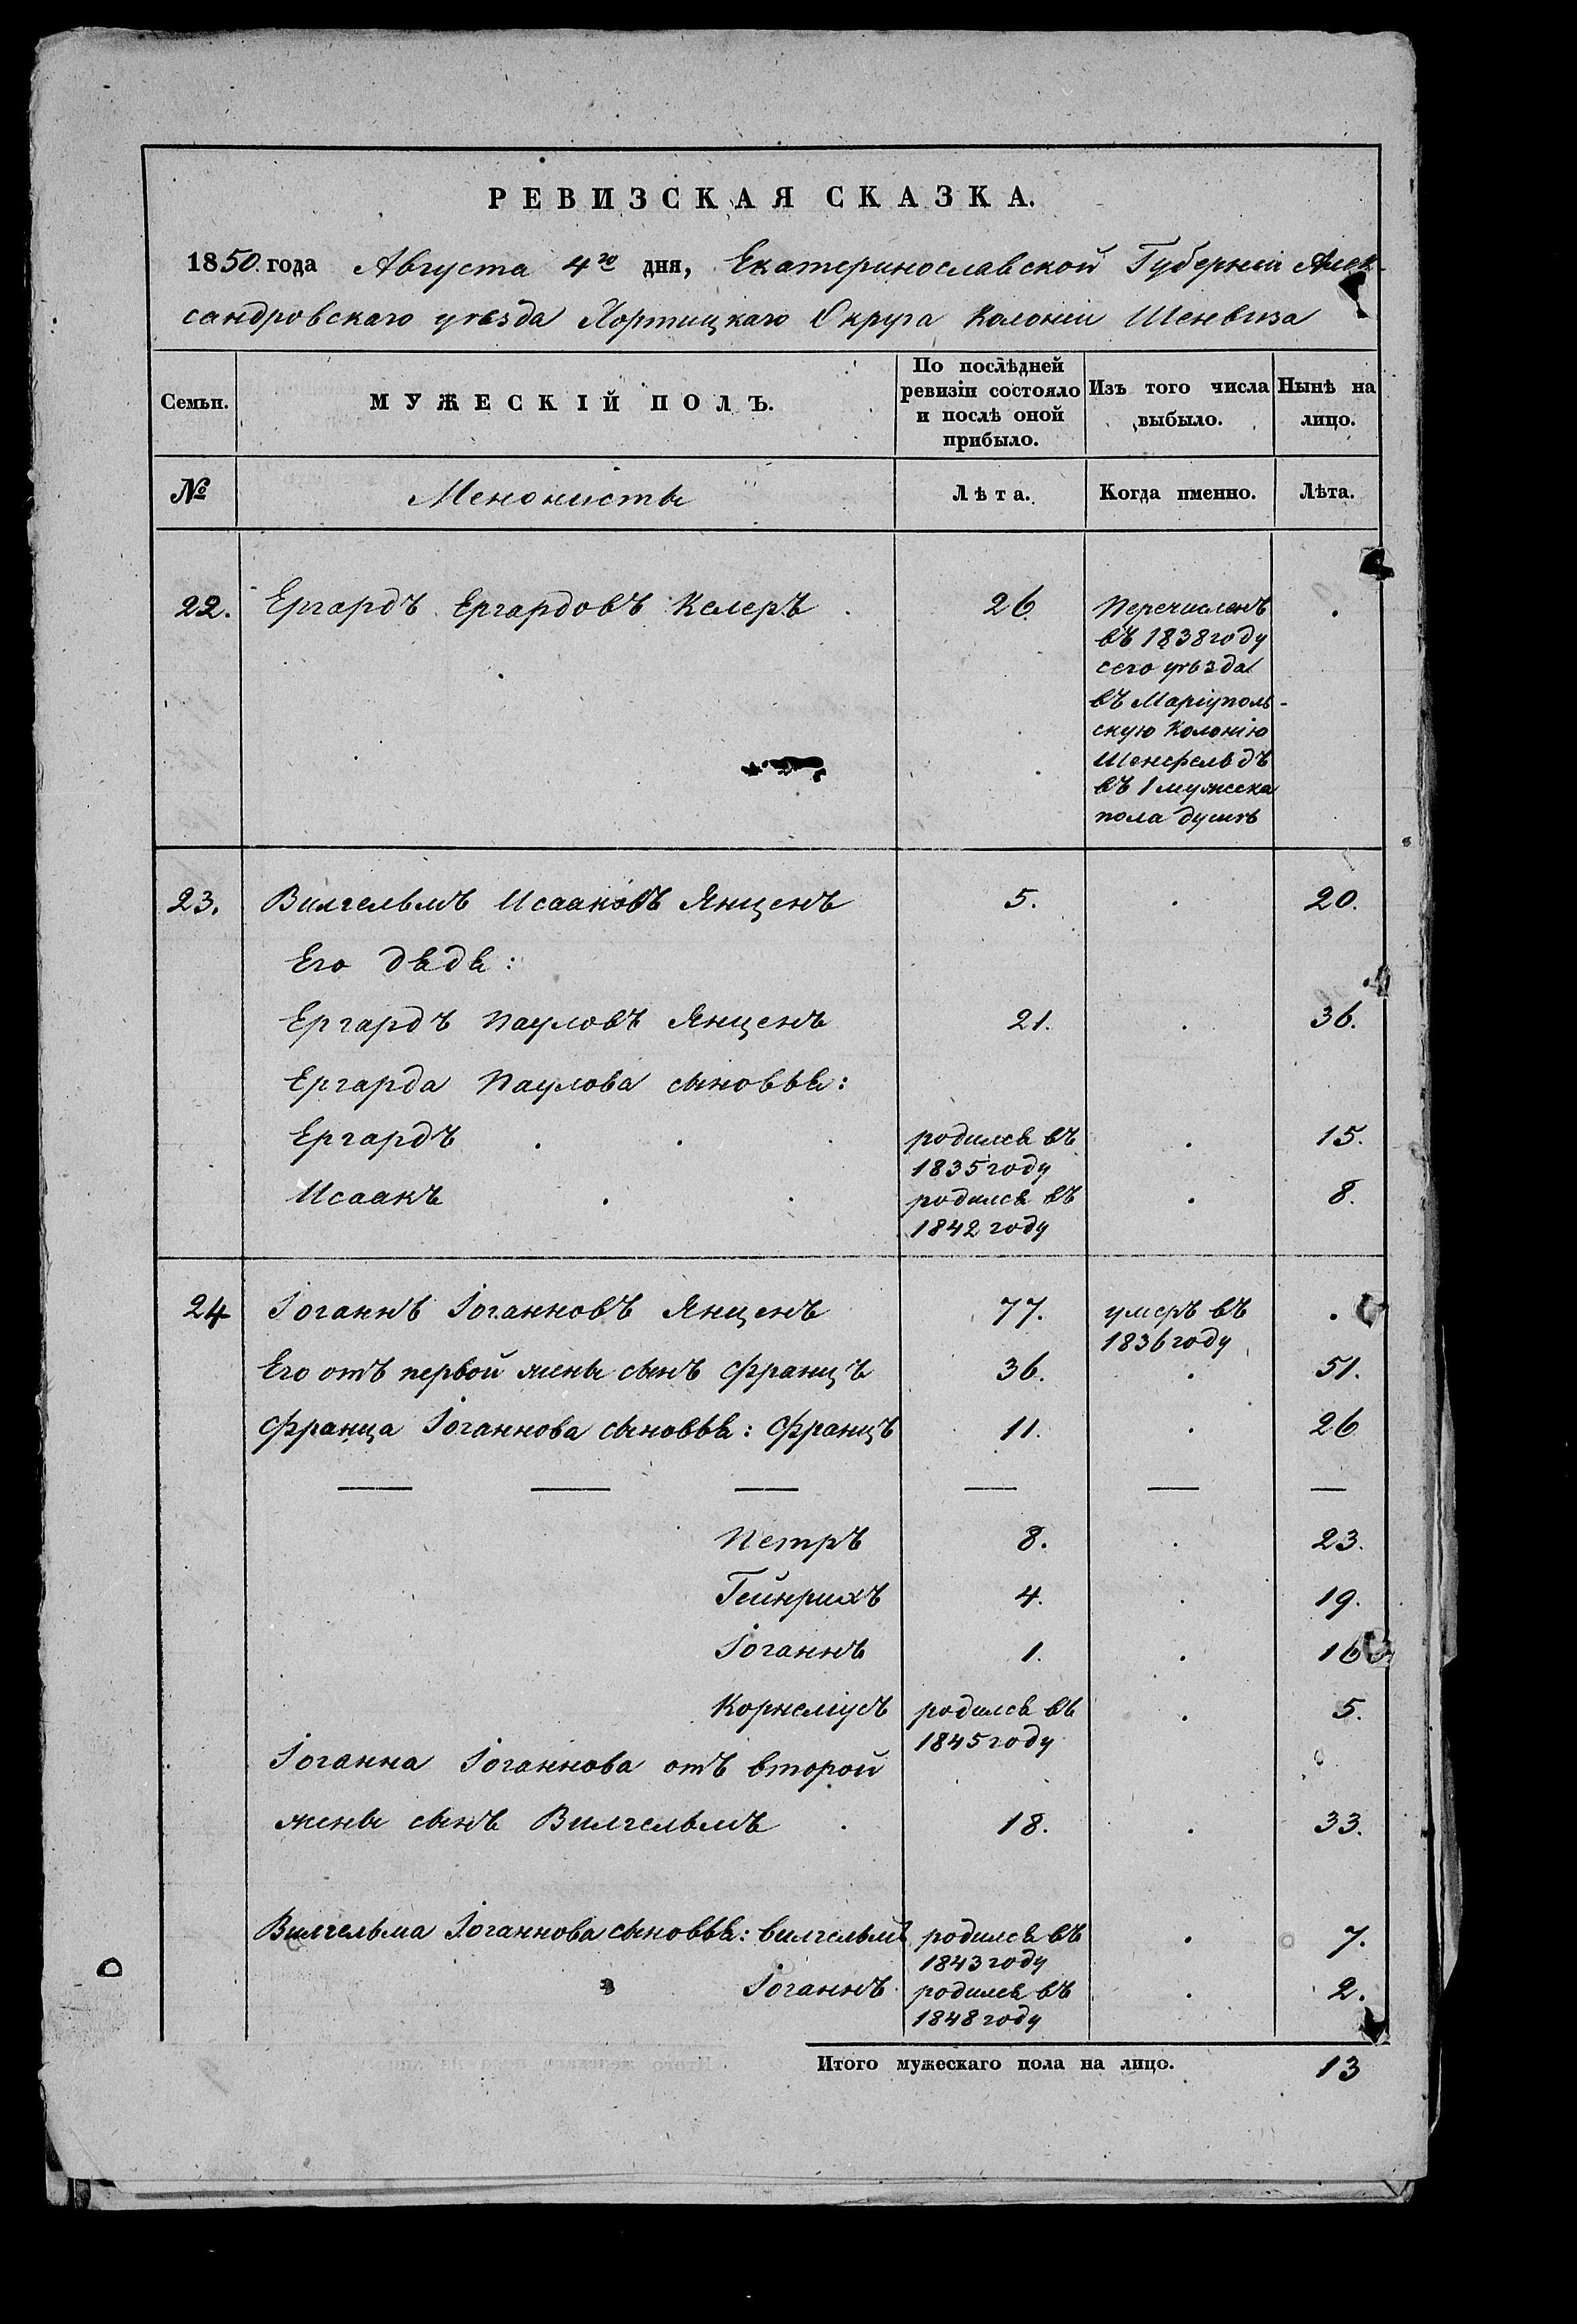 РЕВИЗСКАЯ СКАЗКА.
1850. года Августа 4го дня, Екатеринославской Губерніи Алек-
сандровскаго уѣзда Хортицкаго Округа Колоніи Шенвиза
Семьи. МУЖЕСКІЙ ПОЛЪ. По послѣдней ревизіи состояло и послѣ оной прибыло. Изъ того числа выбыло. Нынѣ на лицо.
№ Менонисты Лѣта. Когда именно. Лѣта.
22. Ергардъ Ергардовъ Келеръ . 26. Перечисленъ .
въ 1838 году
сего уѣзда
въ Маріуполь-
скую Колонію
Шенфельдъ
въ 1 мужеска
пола душѣ
23. Вилгельмъ Исааковъ Янценъ 5. . 20.
Его дядя:
Ергардъ Пауловъ Янценъ 21. . 36.
Ергарда Паулова сыновья:
Ергардъ . . . родился въ . 15.
1835 году
Исаакъ . . родился въ . 8.
1842 году
24 Іоганнъ Іоганновъ Янценъ 77. умеръ въ .
1836 году
Его отъ первой жены сынъ Францъ 36. . 51.
Франца Іоганнова сыновья: Францъ 11. . 26
— — — — — —
Петръ 8. . 23.
Гейнрихъ 4. . 19.
Іоганнъ 1. . 16
Корнеліусъ родился въ . 5.
1845 году
Іоганна Іоганнова отъ второй
жены сынъ Вилгельмъ . 18. . 33.
Вилгельма Іоганнова сыновья: Вилгельмъ родился въ . 7.
1843 году
Іоганнъ родился въ . 2.
1848 году
Итого мужескаго пола на лицо. 13